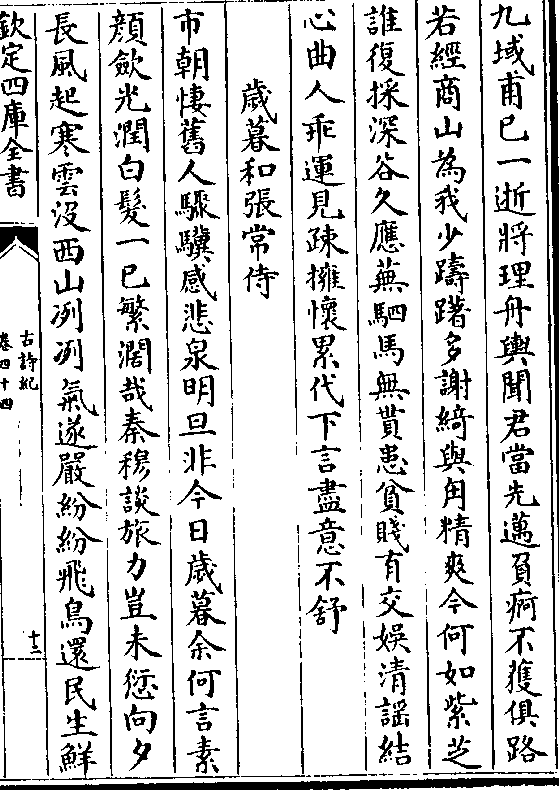 九域甫已一逝將理舟輿聞君當先邁負痾不獲俱路
若經商山為我少躊躇多謝綺與甪精爽今何如紫芝
誰復採深谷久應蕪駟馬無貰患貧賤有交娛清謡結
心曲人乖運見疎擁懷累代下言盡意不舒
歲暮和張常侍
市朝悽舊人驟驥感悲泉明旦非今日歲暮余何言素
顔歛光潤白髮一已繁濶哉秦穆談旅力豈未愆向夕
長風起寒雲没西山冽冽氣遂嚴紛紛飛鳥還民生鮮
欽定四庫全書
古詩紀
卷四十四
十三